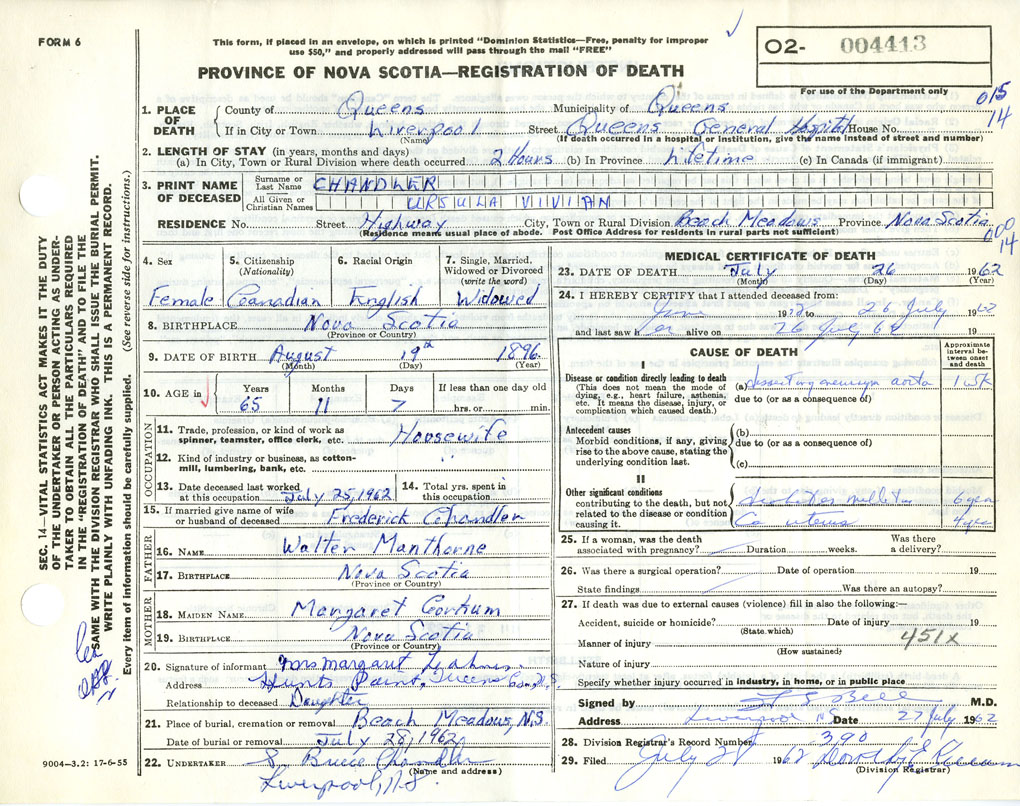 FORM 6
This form, if placed in an envelope, on which is printed "Dominion Statistics—Free, penalty for improper
use $50," and properly addressed will pass through the mail "FREE"
PROVINCE OF NOVA SCOTIA—REGISTRATION OF DEATH
O2- 004413
For use of the Department only
015
14
1. PLACE OF DEATH
County of Queens Municipality of Queens
If in City or Town Liverpool Street Queens General Hospital House No.
(Name) (If death occurred in a hospital or institution, give the name instead of street and number)
2. LENGTH OF STAY (in years, months and days)
(a) In City, Town or Rural Division where death occurred 2 Hours (b) In Province Lifetime (c) In Canada (if immigrant)
3. PRINT NAME OF DECEASED
Surname or Last Name CHANDLER
All Given or Christian Names URSULA VIVIAN
RESIDENCE No. Street Highway City, Town or Rural Division Beach Meadows Province Nova Scotia
(Residence means usual place of abode. Post Office Address for residents in rural parts not sufficient)
000
14
4. Sex Female
5. Citizenship (Nationality) Canadian
6. Racial Origin English
7. Single, Married, Widowed or Divorced (write the word) Widowed
8. BIRTHPLACE Nova Scotia
(Province or Country)
9. DATE OF BIRTH August 19th 1896
(Month) (Day) (Year)
10. AGE in Years Months Days If less than one day old
65 11 7 hrs. or min.
OCCUPATION
11. Trade, profession, or kind of work as spinner, teamster, office clerk, etc. Housewife
12. Kind of industry or business, as cotton-mill, lumbering, bank, etc. " "
13. Date deceased last worked at this occupation July 25, 1962
14. Total yrs. spent in this occupation
15. If married give name of wife or husband of deceased Frederick Chandler
FATHER
16. NAME Walter Manthorne
17. BIRTHPLACE Nova Scotia
(Province or Country)
MOTHER
18. MAIDEN NAME Margaret
19. BIRTHPLACE Nova Scotia
(Province or Country)
20. Signature of informant Mrs Margaret
Address Hunts Point, Queens Co., N.S.
Relationship to deceased Daughter
21. Place of burial, cremation or removal Beach Meadows, N.S.
Date of burial or removal July 28, 1962
22. UNDERTAKER S. Bruce Chandler
(Name and address)
Liverpool, N.S
MEDICAL CERTIFICATE OF DEATH
23. DATE OF DEATH July 26 1962
(Month) (Day) (Year)
24. I HEREBY CERTIFY that I attended deceased from:
June 19 to 26 July 1962
and last saw her alive on 26 July 62 19
CAUSE OF DEATH
Approximate interval between onset and death
I
Disease or condition directly leading to death
(This does not mean the mode of dying, e.g., heart failure, asthenia, etc. It means the disease, injury, or complication which caused death.)
(a) dissecting aneurysm aorta 1 wk
due to (or as a consequence of)
Antecedent causes
Morbid conditions, if any, giving rise to the above cause, stating the underlying condition last.
(b)
due to (or as a consequence of)
(c)
II
Other significant conditions contributing to the death, but not related to the disease or condition causing it.
diabetes mellitus 6 years
Ca uterus 4 yrs
25. If a woman, was the death associated with pregnancy? Duration weeks. Was there a delivery?
26. Was there a surgical operation? Date of operation 19
State findings Was there an autopsy?
27. If death was due to external causes (violence) fill in also the following:—
Accident, suicide or homicide? Date of injury 19
(State which)
451X
Manner of injury
(How sustained)
Nature of injury
Specify whether injury occurred in industry, in home, or in public place
Signed by Bell M.D.
Address Liverpool NS Date 27 July 1962
28. Division Registrar's Record Number 390
29. Filed July 28 1962 Dorothy
(Division Registrar)
SEC. 14—VITAL STATISTICS ACT MAKES IT THE DUTY
OF THE UNDERTAKER OR PERSON ACTING AS UNDERTAKER
TO OBTAIN ALL THE PARTICULARS REQUIRED
IN THE "REGISTRATION OF DEATH" AND TO FILE THE
SAME WITH THE DIVISION REGISTRAR WHO SHALL ISSUE THE BURIAL PERMIT.
WRITE PLAINLY WITH UNFADING INK. THIS IS A PERMANENT RECORD.
Every item of information should be carefully supplied. (See reverse side for instructions.)
9004-3.2: 17-6-55